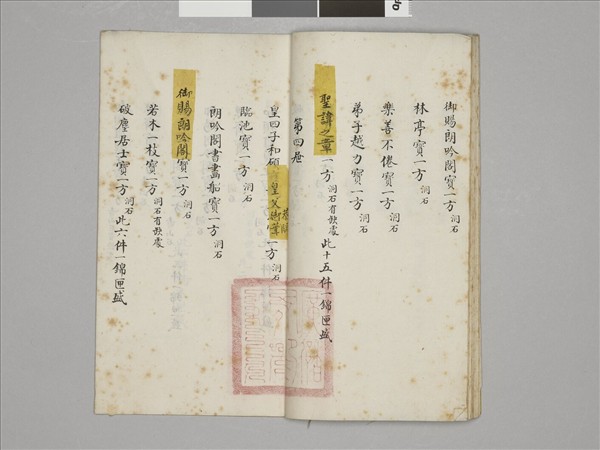 御賜朗吟閣寶一方 洞石
林亭寶一方 洞石
樂善不倦寶一方 洞石
弟子越力寶一方 洞石
聖諱之章一方 洞石有缺處 此十五件一錦匣盛
第四卷
皇四子和碩 皇父御筆一方 洞石
臨池寶一方 洞石
朗吟閣書畫船寶一方 洞石
御賜朗吟閣寶一方 洞石
若木一枝寶一方 洞石有缺處
破塵居士寶一方 洞石 此六件一錦匣盛